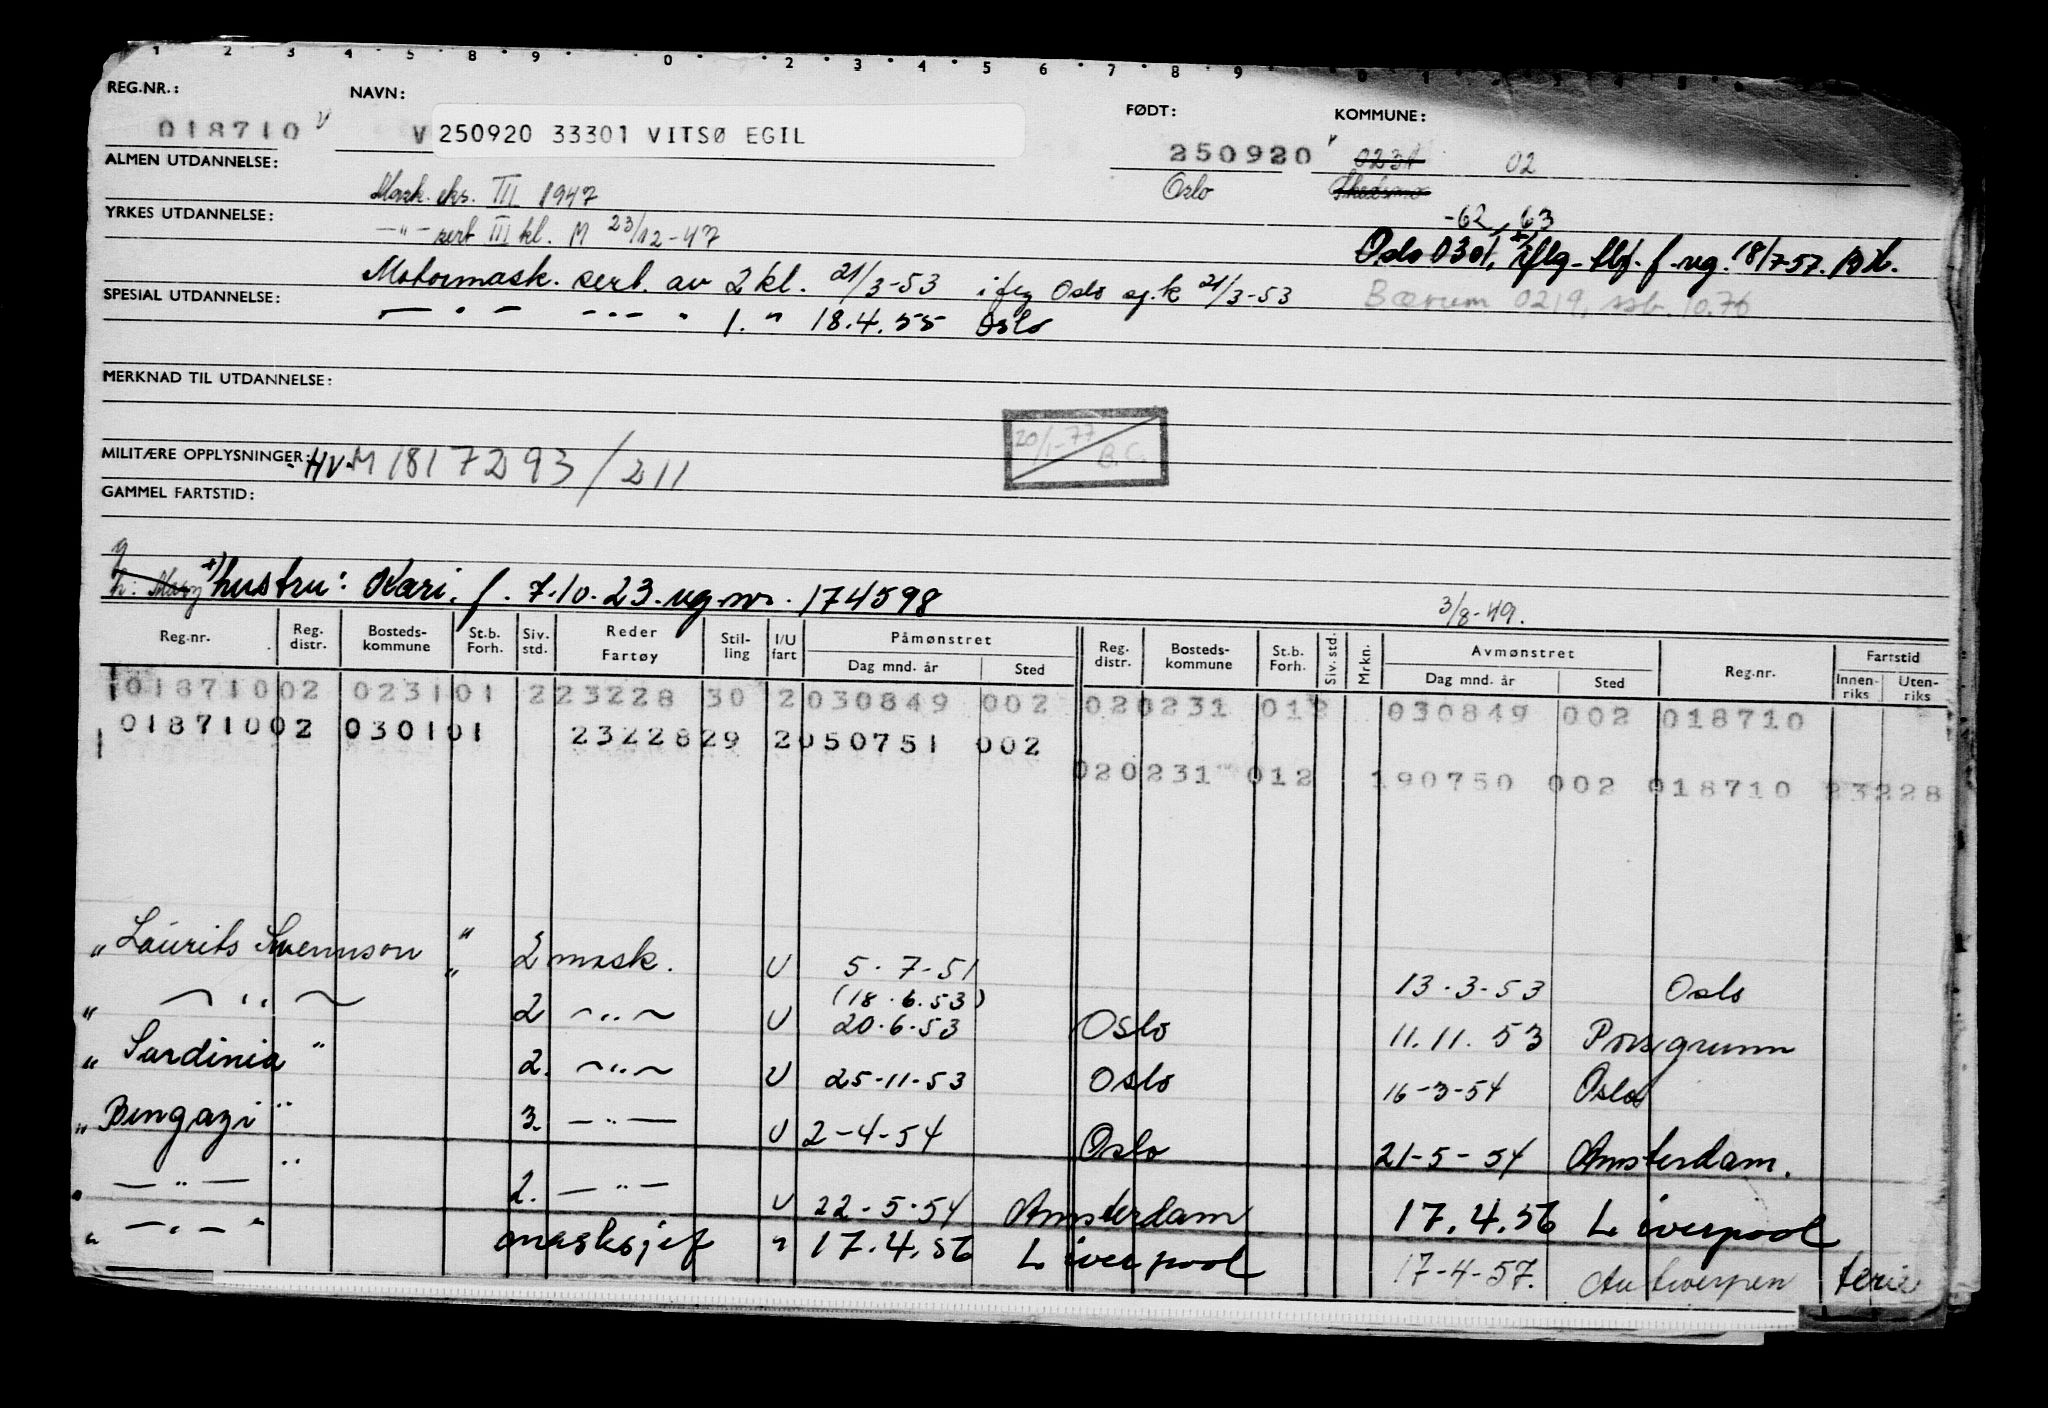 1 2 3 4 5 8 9 0 2 3 4 5 6 7 8 9 0 1
REG.NR.: NAVN: FØDT: KOMMUNE:
018710 V V 250920 33301 VITSØ EGIL 250920 0231 02
ALMEN UTDANNELSE: Mask. eks. III 1947 Oslo Skedsmo
YRKES UTDANNELSE: —"— sert III kl. M 23/12-47 -62, 63
Oslo 0301, f. 18/7-57.
Motormask. sert. av 2 kl. 21/3-53 Oslo sj.k 21/3-53 Bærum 0219, 10.76
SPESIAL UTDANNELSE: — " — — " — " 1. " 18.4.55 Oslo
MERKNAD TIL UTDANNELSE:
20/1-77 B.C.
MILITÆRE OPPLYSNINGER: HV-M 1817293/211
GAMMEL FARTSTID:
g
h: Mary x) hustru: Kari. f. 7.10.23. rg.nr. 174598 3/8-49.
Reg.nr. Reg. distr. Bosteds-kommune St.b. Forh. Siv. std. Reder Fartøy Stil-ling I/U fart Påmønstret Dag mnd. år Sted Reg. distr. Bosteds-kommune St.b. Forh. Siv. std. Mrkn. Avmønstret Dag mnd. år Sted Reg.nr. Fartstid Innen-riks Uten-riks
01871002 023101 223228 30 2030849 002 020231 012 030849 002 018710
01871002 030101 2322829 2050751 002
020231 012 190750 002 018710 23228
" Laurits Swennson " 2 mask. U 5.7-51 13.3-53 Oslo
" — " — " 2 — " — U (18.6.53) 20.6.53 Oslo 11.11.53 Porsgrunn
" Sardinia " 2. — " — U 25-11-53 Oslo 16-3-54 Oslo
" Bengazi " 3. — " — U 2-4-54 Oslo 21-5-54 Amsterdam.
" — " — " 2. — " — U 22-5-54 Amsterdam 17.4.56 Liverpool
" — " — " masksjef " 17.4.56 Liverpool 17-4-57. Antwerpen ferie